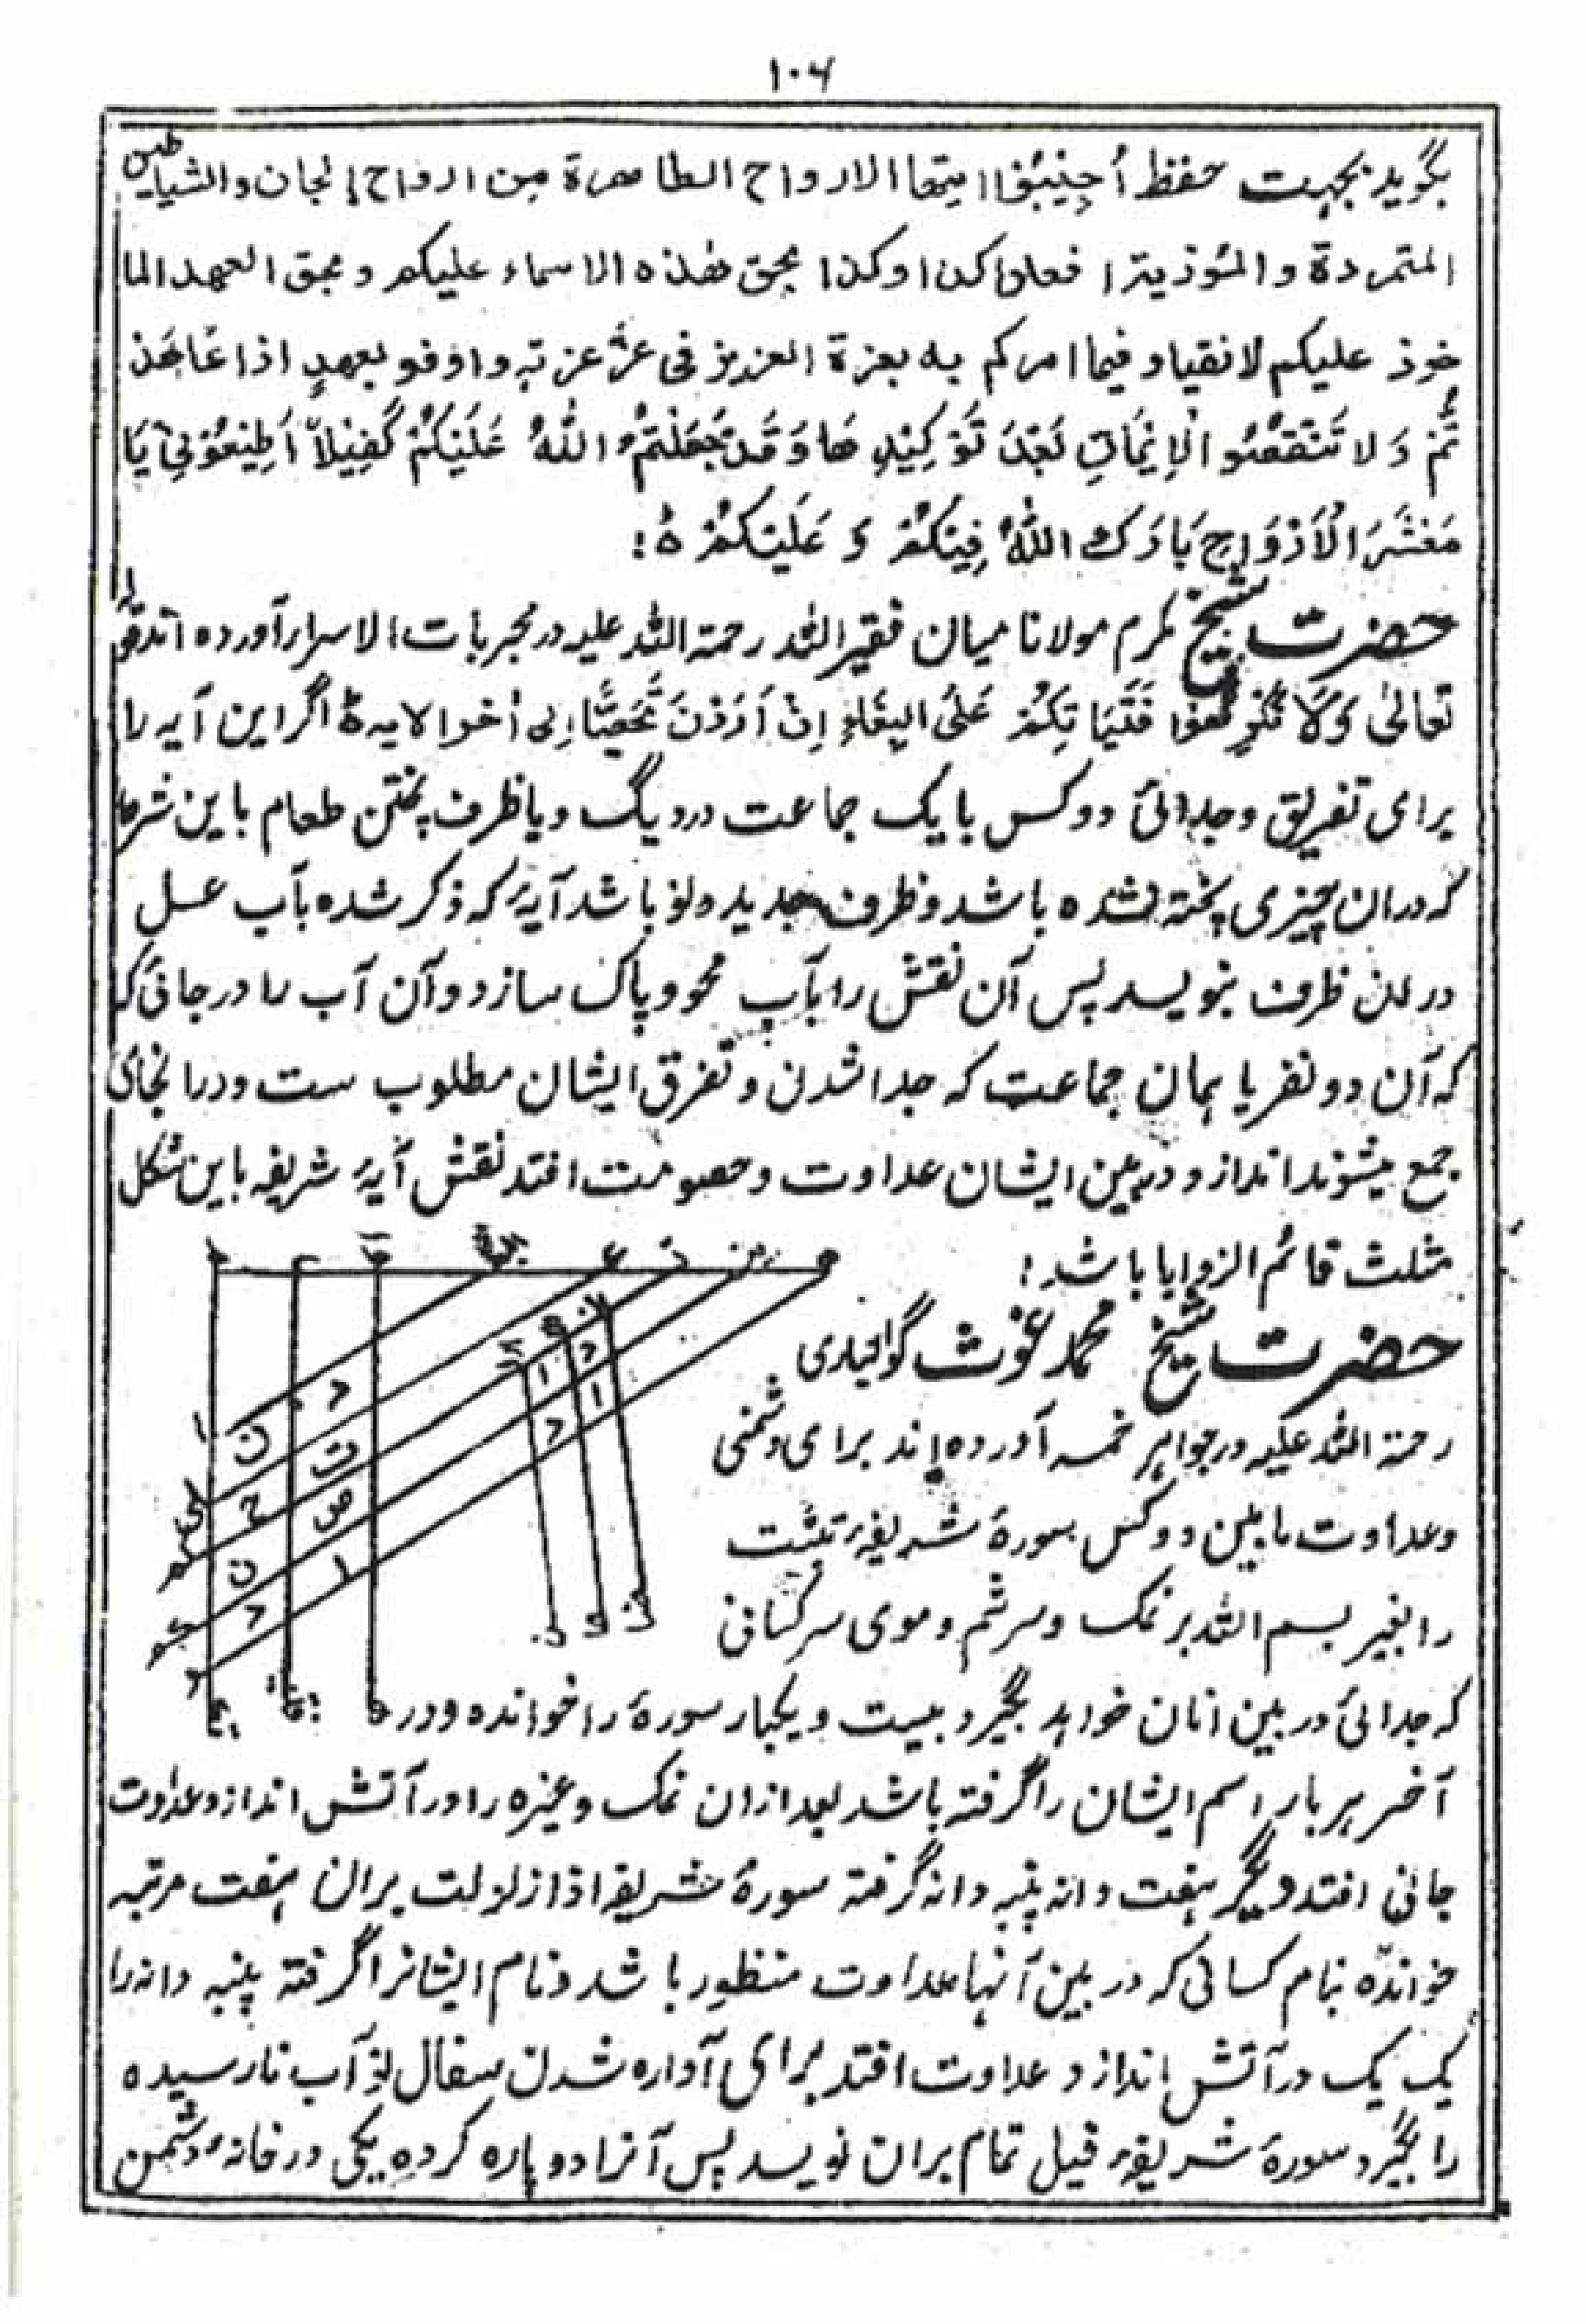 ۱۰۶
بگوید بجهت حفظ أجيبوا ايتها الارواح الطاهرة من ارواح الجان والشياطين
المتمردة والموذية افعلوا كذا وكذا بحق هذه الاسماء عليكم و بحق العهد الما
خوذ عليكم لانقياد فيما امركم به بعزة العزيز فى عز عزته واوفو بعهد اذا عاهد
تُم وَلا تَنقُضُوا الْاِيْمَانَ بَعْدَ تَوْكِيْدِهَا وَقَدْ جَعَلْتُمُ اللهُ عَلَيْكُمْ كَفِيْلاً اَطِيْعُوْنِيْ يَا
مَعْشَرَ الْاَرْوَاحِ بَارَكَ اللهُ فِيْكُمْ وَ عَلَيْكُمْ هٗ:
حضرت شیخ مکرم مولانا میان فقیر اللہ رحمۃ اللہ علیہ در مجربات الاسرار آورده اند قوله
تعالیٰ وَلَا تُكْرِهُوْا فَتَيَاتِكُمْ عَلَى الْبِغَاءِ اِنْ اَرَدْنَ تَحَصُّنًا الى أخر الايه هٗ اگر این آیه را
برای تفریق وجدائی دو کس با یک جماعت در دیگ و یا ظرف پختن طعام باین شرط
که در ان چیزی پخته نشده باشد و ظرف جدید و نو باشد آیۂ که ذکر شده بآب عسل
در ان ظرف بنویسد پس آن نقش را بآب محو و پاک سازد و آن آب را در جائی که
که آن دو نفر یا همان جماعت که جدا شدن و تفرق ایشان مطلوب ست و در انجای
جمع میشوند اندازد در بین ایشان عداوت و خصومت افتد نقش آیۂ شریفه باین شکل
مثلث قائم الزوایا باشد:
حضرت شیخ محمد غوث گوالیاری
رحمۃ اللہ علیہ در جواہر خمسہ آورده اند برای دشمنی
وعداوت مابین دو کس سورۂ شریفۂ تبّت
را بغیر بسم اللہ بر نمک و سرشم و موی سر کسانی
که جدائی در بین انان خواہد بگیرد بیست و یکبار سورۂ را خوانده و در
آخر ہر بار اسم ایشان را گرفته باشد بعد ازان نمک وغیره را در آتش اندازد عداوت
جانی افتد دیگر ہفت دانه پنبه دانه گرفته سورۂ شریفه اذا زلزلت بران ہفت مرتبه
خوانده بنام کسانی که در بین آنہا عداوت منظور باشد و نام ایشانرا گرفته پنبه دانه را
یک یک در آتش اندازد عداوت افتد برای آواره شدن سفال نو آب نارسیده
را بگیرد سورۂ شریفۂ فیل تمام بران نویسد پس آنرا دو پاره کرده یکی در خانۂ دشمن